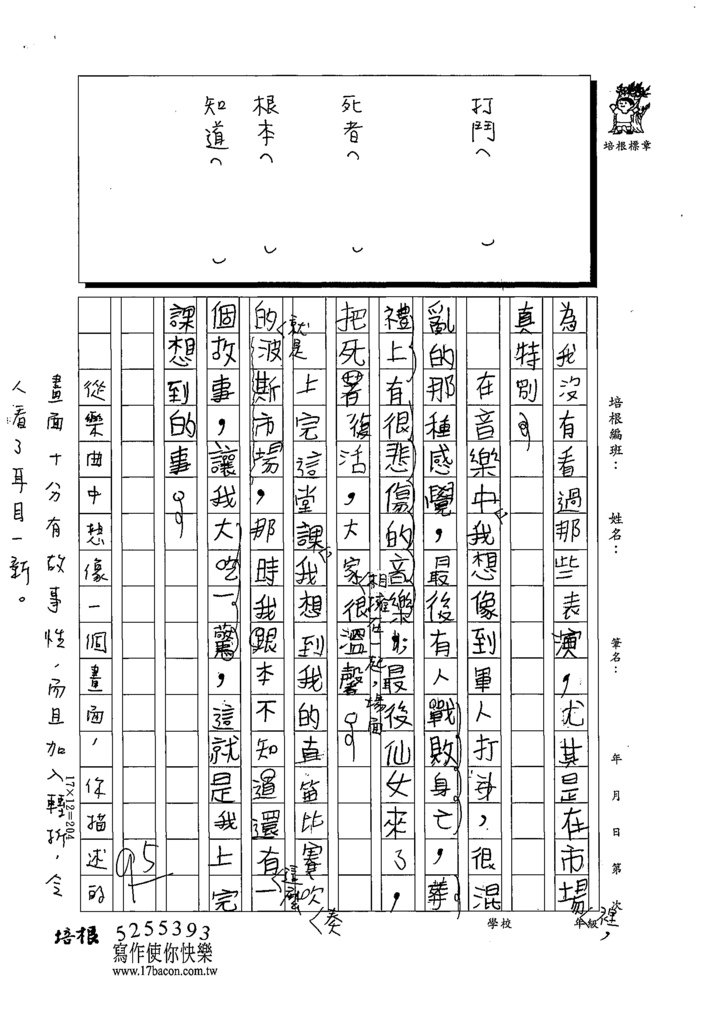 打鬥︵ ︶
死者︵ ︶
根本︵ ︶
知道︵ ︶
培根標章
培根編班： 姓名： 筆名： 年 月 日 第 次
學校 年級
為我沒有看過那些表演，尤其是在市場裡，
真特別。
在音樂中，我想像到軍人打鬥，很混
亂的那種感覺，最後有人戰敗身亡，葬
禮上有很悲傷的音樂；最後仙女來了，
把死者復活，大家相擁在一起，場面很溫馨。
就是上完這堂課，我想到我的直笛比賽吹奏
的波斯市場，那時我跟本不知道還有這麼一
個故事，讓我大吃一驚，這就是我上完
課想到的事。
從樂曲中想像一個畫面，你描述的
畫面十分有故事性，而且加入轉折，令
人看了耳目一新。
95
17×12=204
培根 5255393
寫作使你快樂
www.17bacon.com.tw